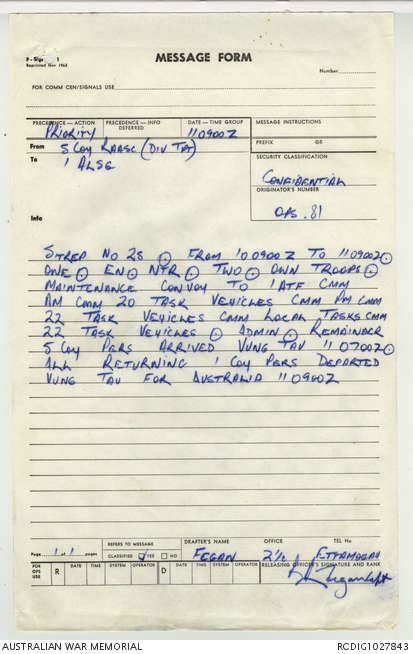 MESSAGE FORM
Reprinted Nov 1965
Number
FOR COMM CEN/SIGNALS USE
PRECEDENCE—ACTION PRECEDENCE—INFO DATE—TIME GROUP MESSAGE INSTRUCTIONS
DEFERRED
PRIORITY 110900Z
PREFIX GR
From 5 COY RAASC (DIV TPT)
SECURITY CLASSIFICATION
To 1 ALSG
CONFIDENTIAL
ORIGINATOR'S NUMBER
Info OPS. 81
SITREP NO 28 ⊙ FROM 100900Z TO 110900Z⊙
ONE ⊙ EN⊙ NTR ⊙ TWO ⊙ OWN TROOPS⊙
MAINTENANCE CONVOY TO 1 ATF CMM
AM CMM 20 TASK VEHICLES CMM PM CMM
22 TASK VEHICLES CMM LOCAL TASKS CMM
22 TASK VEHICLES ⊙ ADMIN ⊙ REMAINDER
5 COY PERS ARRIVED VUNG TAU 110700Z⊙
ALL RETURNING 1 COY PERS DEPARTED
VUNG TAU FOR AUSTRALIA 110900Z
REFERS TO MESSAGE DRAFTER'S NAME OFFICE TEL No
Page 1 of 1 pages CLASSIFIED YES NO FEGAN
FOR OPS USE R DATE TIME SYSTEM OPERATOR D DATE TIME SYSTEM OPERATOR RELEASING OFFICER'S SIGNATURE AND RANK
AUSTRALIAN WAR MEMORIAL RCDIG1027843